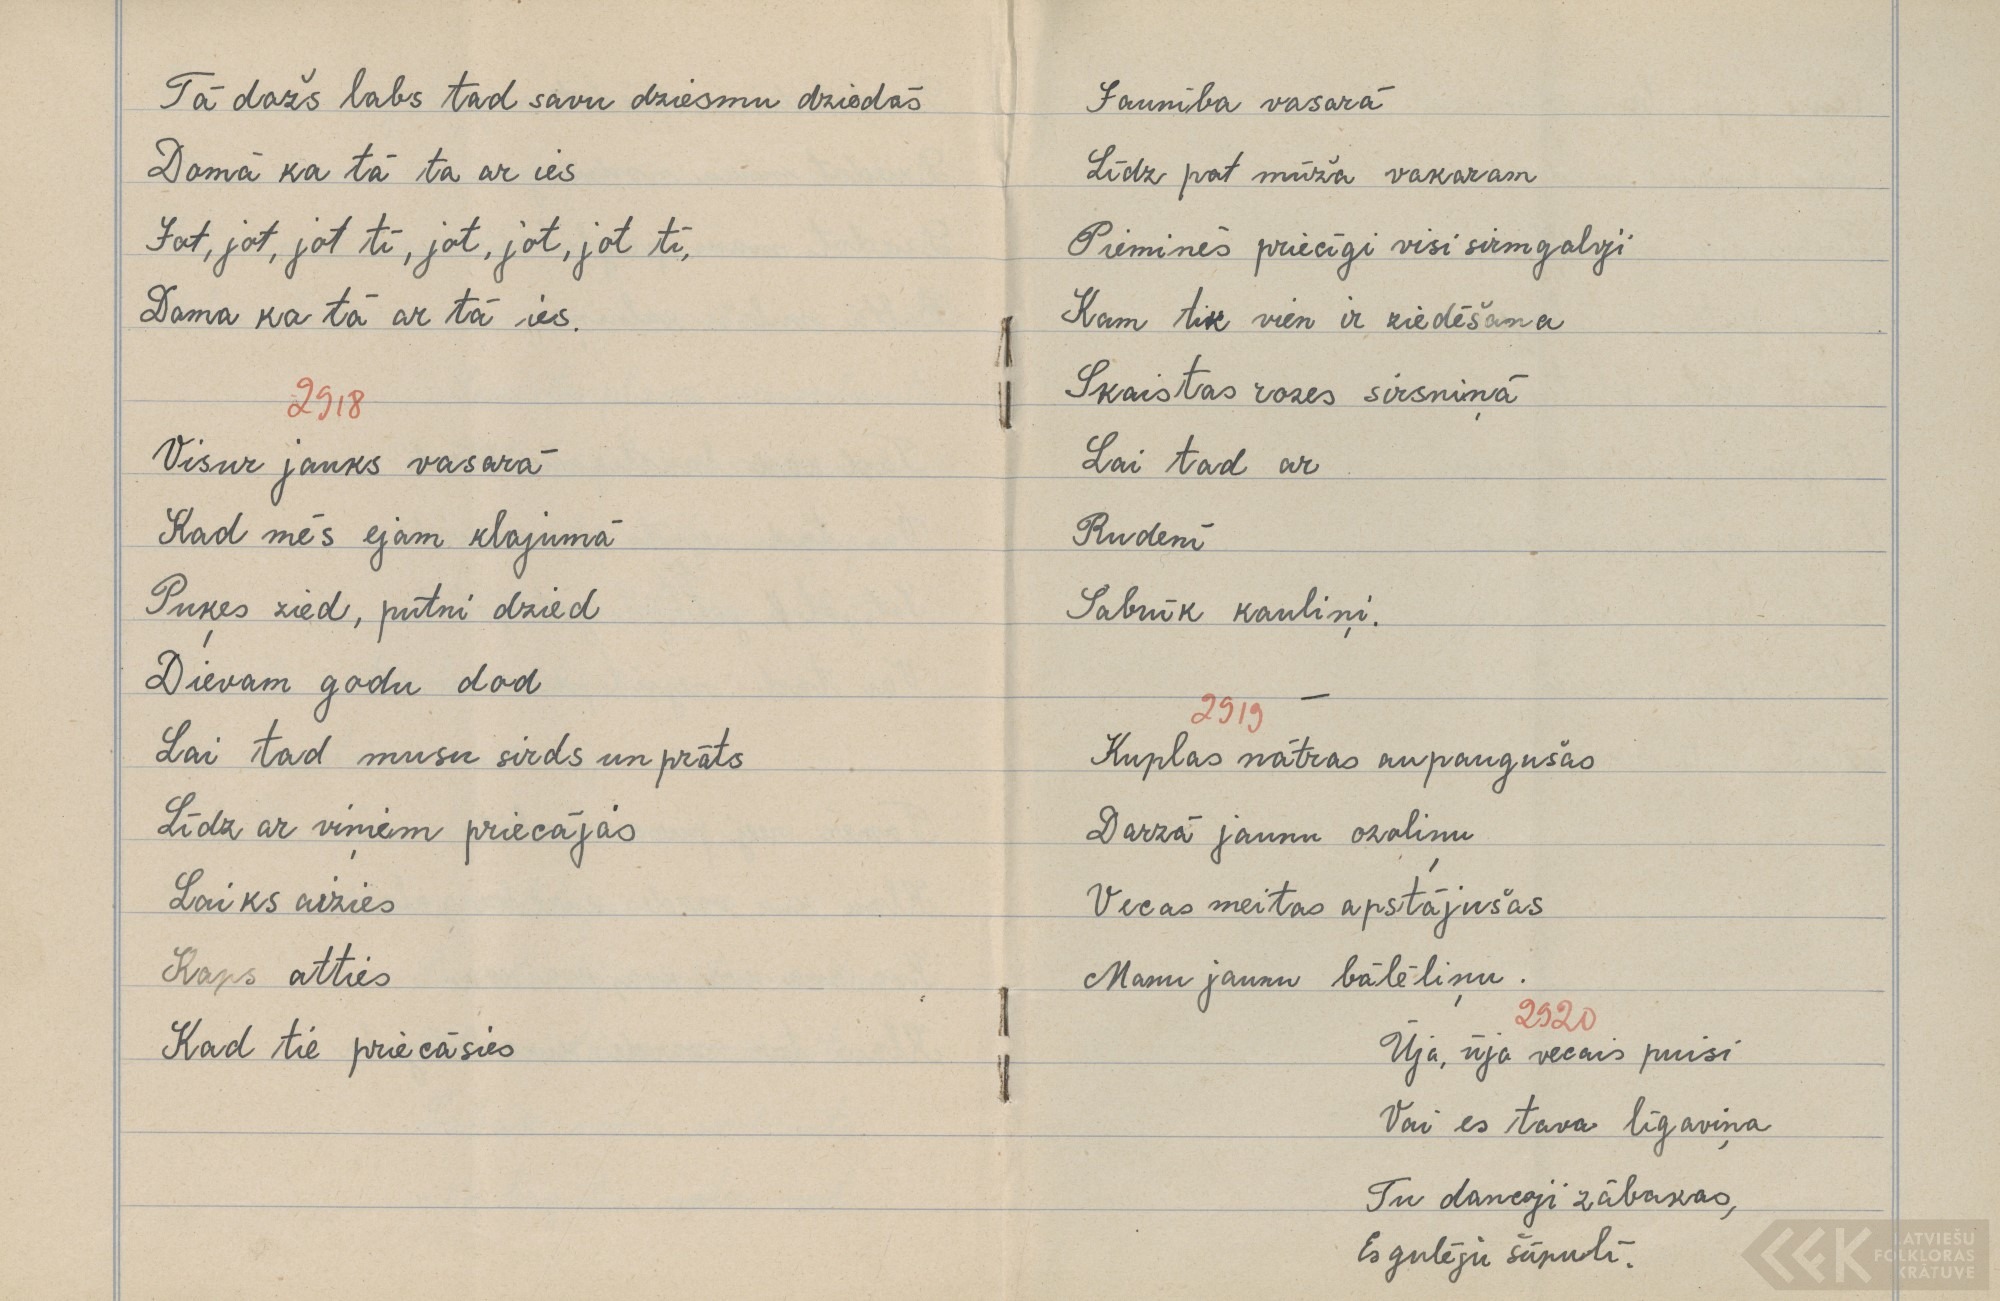 Tā dažs labs tad savu dziesmu dziedās
Domā ka tā ta ar ies
Jot, jot, jot tī, jot, jot, jot tī,
Doma ka tā ar tā ies.
2918
Visur jauks vasarā
Kad mēs ejam klajumā
Puķes zied, putni dzied
Dievam godu dod
Lai tad musu sirds un prāts
Līdz ar viņiem priecājās
Laiks aizies
Kaps atties
Kad tie priecāsies
Jaunība vasarā
Līdz pat mūža vakaram
Pieminēs priecīgi visi sirmgalvji
Kam tik vien ir ziedēšana
Skaistas rozes sirsniņā
Lai tad ar
Rudenī
Sabrūk kauliņi.
2919
Kuplas nātras aupaugušas
Darzā jaunu ozoliņu
Vecas meitas apstājušas
Manu jaunu bālēliņu.
2920
Ūja, ūja vecais puisi
Vai es tava līgaviņa
Tu dancoji zābakos,
Es gulēju šūpulī.
LATVIEŠU
FOLKLORAS
KRĀTUVE